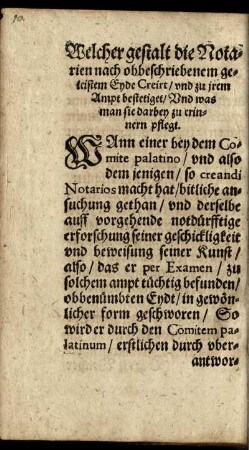 Welcher gestalt die Nota-
rien nach obbeschriebenem ge-
leistem Eyde Creirt / vnd zu jrem
Ampt bestetiget / Vnd was
man sie darbey zu erin-
nern pflegt.
WAnn einer bey dem Co-
mite palatino / vnd also
dem jenigen / so creandi
Notarios macht hat / bitliche an-
suchung gethan / vnd derselbe
auff vorgehende notdürfftige
erforschung seiner geschickligkeit
vnd beweisung seiner Kunst /
also / das er per Examen / zu
solchem ampt tüchtig befunden /
obbenümbten Eydt / in gewön-
licher form geschworen / So
wird er durch den Comitem pa-
latinum / erstlichen durch vber-
antwor-